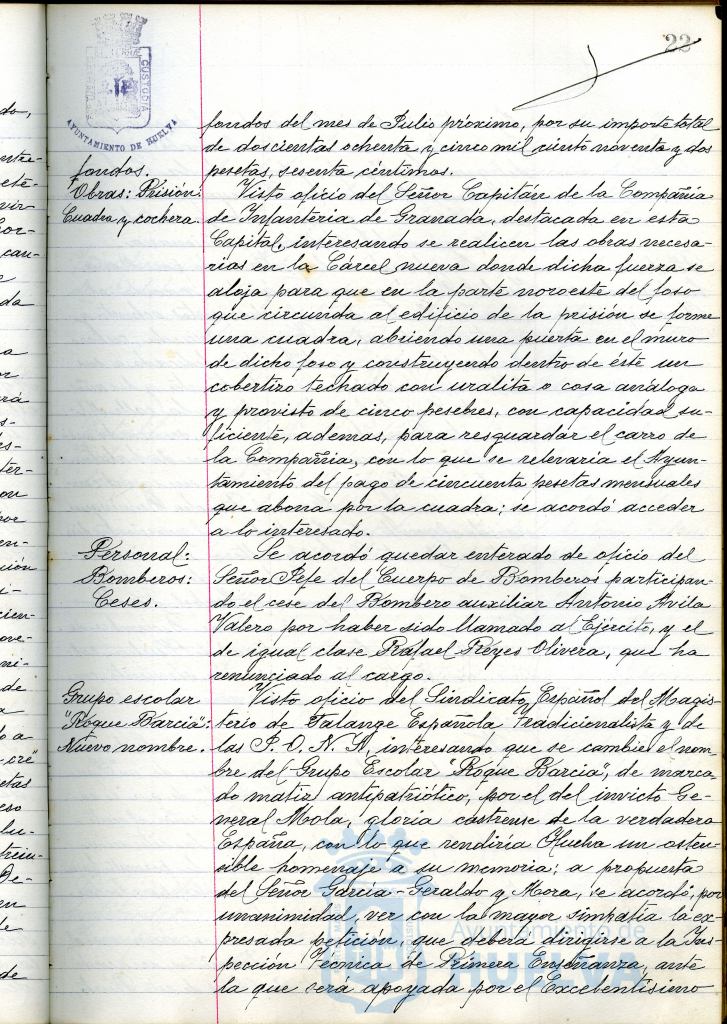 22
CUSTODIA
AYUNTAMIENTO DE HUELVA
fondos del mes de Julio próximo, por su importe total
de doscientas ochenta y cinco mil ciento noventa y dos
pesetas, sesenta céntimos.
fondos.
Obras: Prisión:
Cuadra y cochera.
Visto oficio del Señor Capitán de la Compañia
de Infanteria de Granada, destacada en esta
Capital, interesando se realicen las obras necesa-
rias en la Cárcel nueva donde dicha fuerza se
aloja para que en la parte noroeste del foso
que circunda al edificio de la prisión se forme
una cuadra, abriendo una puerta en el muro
de dicho foso y construyendo dentro de éste un
cobertizo techado con uralita o cosa análoga
y provisto de cinco pesebres, con capacidad su-
ficiente, ademas, para resguardar el carro de
la Compañia, con lo que se relevaria el Ayun-
tamiento del pago de cincuenta pesetas mensuales
que abona por la cuadra; se acordó acceder
a lo interesado.
Personal:
Bomberos:
Ceses.
Se acordó quedar enterado de oficio del
Señor Jefe del Cuerpo de Bomberos participan-
do el cese del Bombero auxiliar Antonio Avila
Valero por haber sido llamado al Ejército, y el
de igual clase Rafael Reyes Olivera, que ha
renunciado al cargo.
Grupo escolar
"Roque Barcia":
Nuevo nombre.
Visto oficio del Sindicato Español del Magis-
terio de Falange Española Tradicionalista y de
las J. O. N. S, interesando que se cambie el nom-
bre del Grupo Escolar "Roque Barcia", de marca-
do matiz antipatriótico, por el del invicto Ge-
neral Mola, gloria castrense de la verdadera
España, con lo que rendiria Huelva un osten-
sible homenaje a su memoria; a propuesta
del Señor Garcia-Geraldo y Mora, se acordó, por
unanimidad, ver con la mayor simpatia la ex-
presada petición, que deberá dirigirse a la Ins-
pección Técnica de Primera Enseñanza, ante
la que será apoyada por el Excelentisimo
Ayuntamiento de
HUELVA